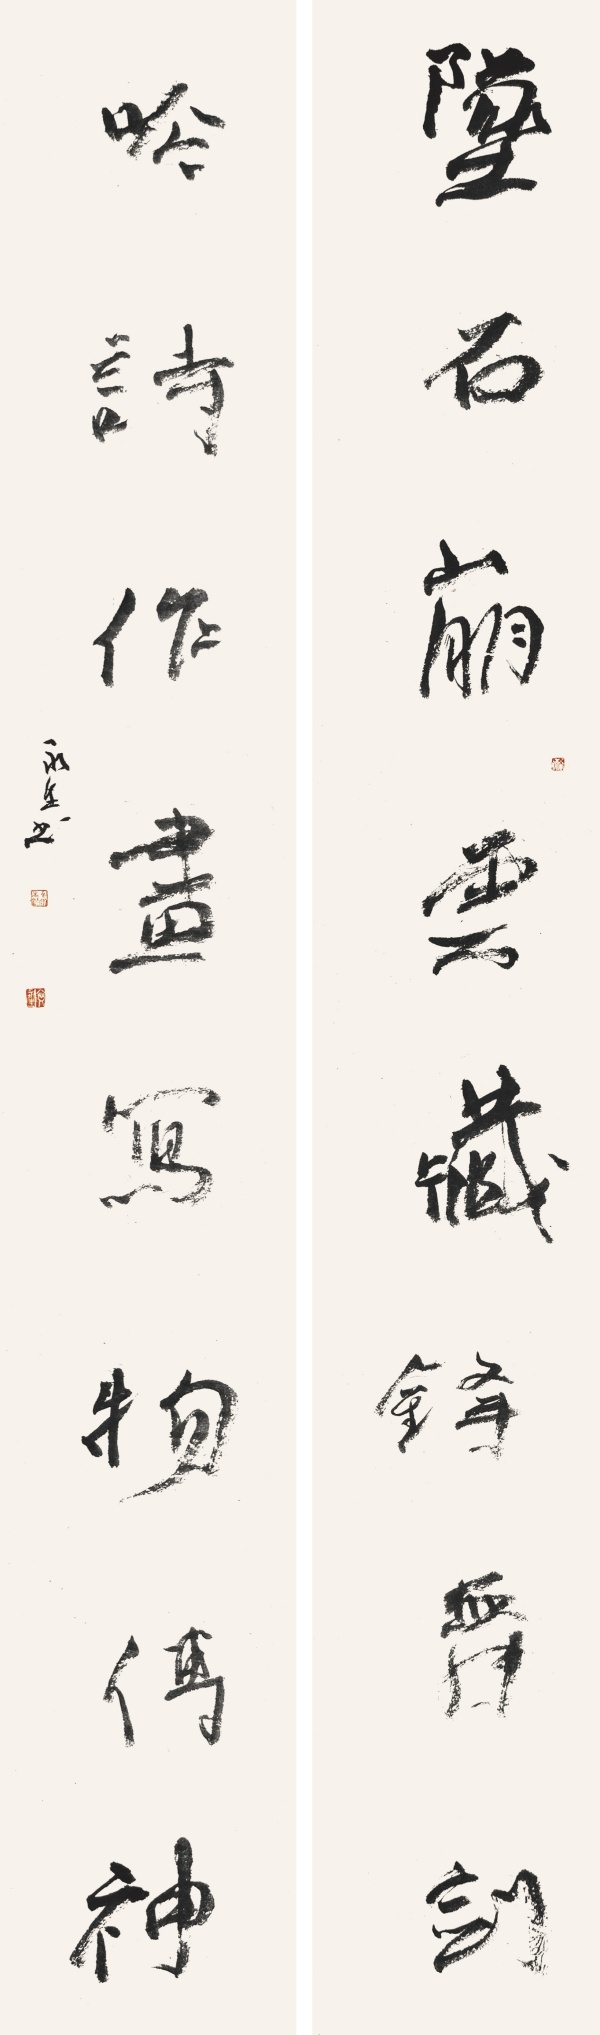 墜石崩雲藏鋒舞劍
吟詩作畫寫物傳神